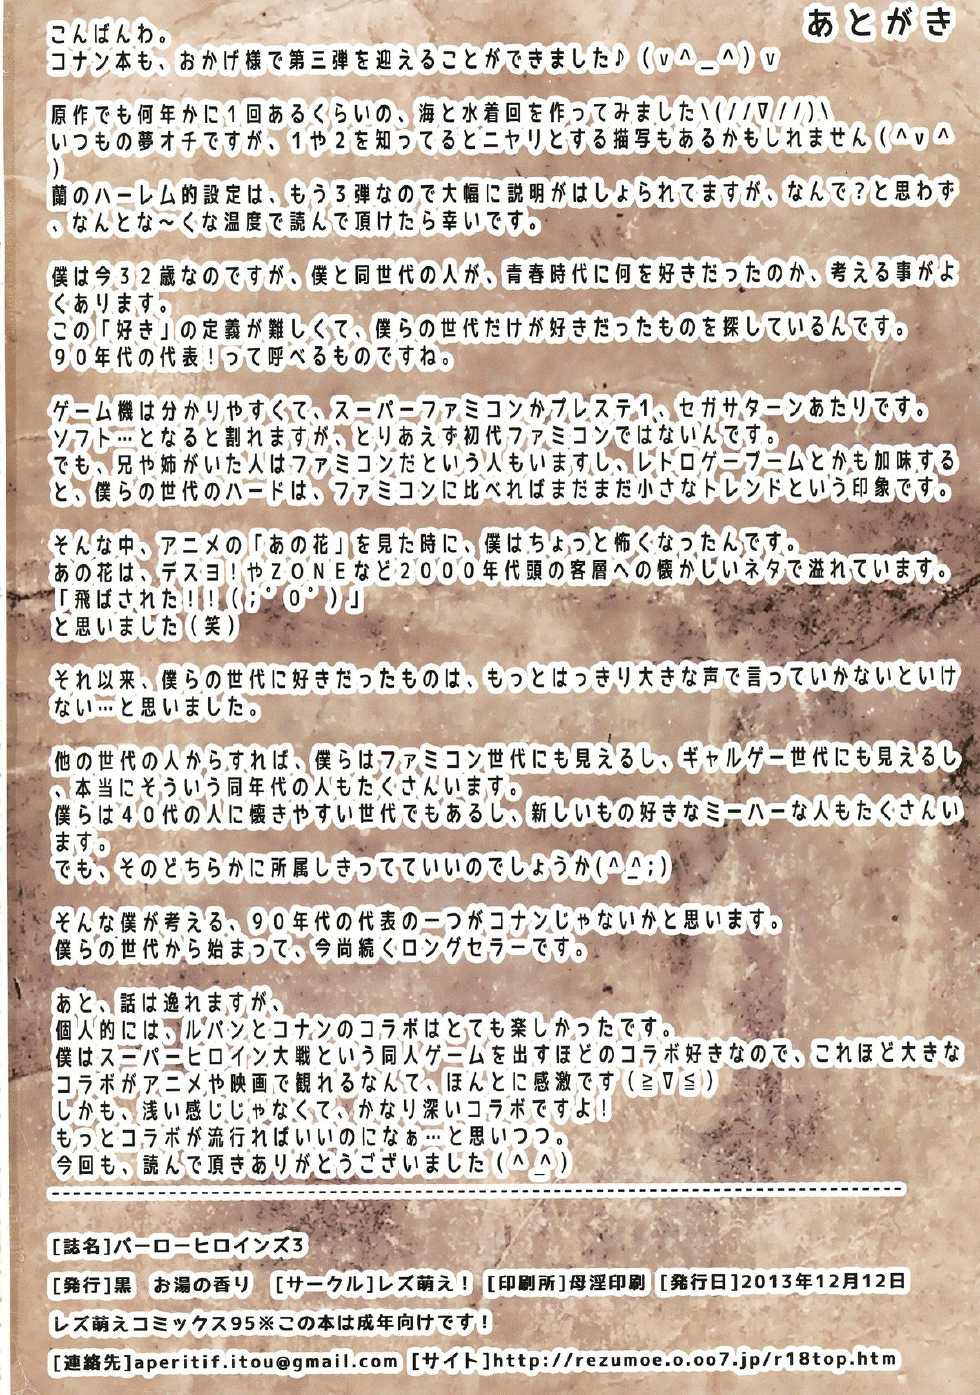 あとがき
こんばんわ。
コナン本も、おかげ様で第三弾を迎えることができました♪(v^_^)v
原作でも何年かに1回あるくらいの、海と水着回を作ってみました\(//∇//)\
いつもの夢オチですが、1や2を知ってるとニヤリとする描写もあるかもしれません(^v^
)
蘭のハーレム的設定は、もう3弾なので大幅に説明がはしょられてますが、なんで?と思わず
、なんとな~くな温度で読んで頂けたら幸いです。
僕は今32歳なのですが、僕と同世代の人が、青春時代に何を好きだったのか、考える事がよ
くあります。
この「好き」の定義が難しくて、僕らの世代だけが好きだったものを探しているんです。
90年代の代表!って呼べるものですね。
ゲーム機は分かりやすくて、スーパーファミコンかプレステ1、セガサターンあたりです。
ソフト…となると割れますが、とりあえず初代ファミコンではないんです。
でも、兄や姉がいた人はファミコンだという人もいますし、レトロゲーブームとかも加味する
と、僕らの世代のハードは、ファミコンに比べればまだまだ小さなトレンドという印象です。
そんな中、アニメの「あの花」を見た時に、僕はちょっと怖くなったんです。
あの花は、デスヨ!やZONEなど2000年代頭の客層への懐かしいネタで溢れています。
「飛ばされた!!(;゜0゜)」
と思いました(笑)
それ以来、僕らの世代に好きだったものは、もっとはっきり大きな声で言っていかないといけ
ない…と思いました。
他の世代の人からすれば、僕らはファミコン世代にも見えるし、ギャルゲー世代にも見えるし
、本当にそういう同年代の人もたくさんいます。
僕らは40代の人に懐きやすい世代でもあるし、新しいもの好きなミーハーな人もたくさんい
ます。
でも、そのどちらかに所属しきってていいのでしょうか(^_^;)
そんな僕が考える、90年代の代表の一つがコナンじゃないかと思います。
僕らの世代から始まって、今尚続くロングセラーです。
あと、話は逸れますが、
個人的には、ルパンとコナンのコラボはとても楽しかったです。
僕はスーパーヒロイン大戦という同人ゲームを出すほどのコラボ好きなので、これほど大きな
コラボがアニメや映画で観れるなんて、ほんとに感激です(≧∇≦)
しかも、浅い感じじゃなくて、かなり深いコラボですよ!
もっとコラボが流行ればいいのになぁ…と思いつつ。
今回も、読んで頂きありがとうございました(^_^)
[誌名]バーローヒロインズ3
[発行]黒 お湯の香り [サークル]レズ萌え! [印刷所]母淫印刷 [発行日]2013年12月12日
レズ萌えコミックス95※この本は成年向けです!
[連絡先]aperitif.itou@gmail.com [サイト]http://rezumoe.o.oo7.jp/r18top.htm